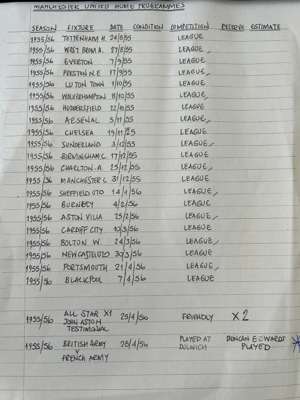 MANCHESTER UNITED HOME PROGRAMMES
SEASON FIXTURE DATE CONDITION COMPETITION RESERVE ESTIMATE
1955/56 TOTTENHAM H. 24/8/55 LEAGUE
1955/56 WEST BROM A. 27/8/55 LEAGUE
1955/56 EVERTON 7/9/55 LEAGUE
1955/56 PRESTON N.E 17/9/55 LEAGUE
1955/56 LUTON TOWN 1/10/55 LEAGUE
1955/56 WOLVERHAMPTON 8/10/55 LEAGUE
1955/56 HUDDERSFIELD 22/10/55 LEAGUE
1955/56 ARSENAL 5/11/55 LEAGUE
1955/56 CHELSEA 19/11/55 LEAGUE
1955/56 SUNDERLAND 3/12/55 LEAGUE
1955/56 BIRMINGHAM C. 17/12/55 LEAGUE
1955/56 CHARLTON A 25/12/55 LEAGUE
1955/56 MANCHESTER C. 31/12/55 LEAGUE
1955/56 SHEFFIELD UTD 14/1/56 LEAGUE
1955/56 BURNLEY 4/2/56 LEAGUE
1955/56 ASTON VILLA 25/2/56 LEAGUE
1955/56 CARDIFF CITY 10/3/56 LEAGUE
1955/56 BOLTON W. 24/3/56 LEAGUE
1955/56 NEWCASTLE UTD 30/3/56 LEAGUE
1955/56 PORTSMOUTH 21/4/56 LEAGUE
1955/56 BLACKPOOL 7/4/56 LEAGUE
1955/56 ALL STAR XI 25/4/56 FRIENDLY X2
JOHN ASTON
TESTIMONIAL
1955/56 BRITISH ARMY 26/4/56 PLAYED AT DUNCAN EDWARDS
V DULWICH PLAYED
FRENCH ARMY